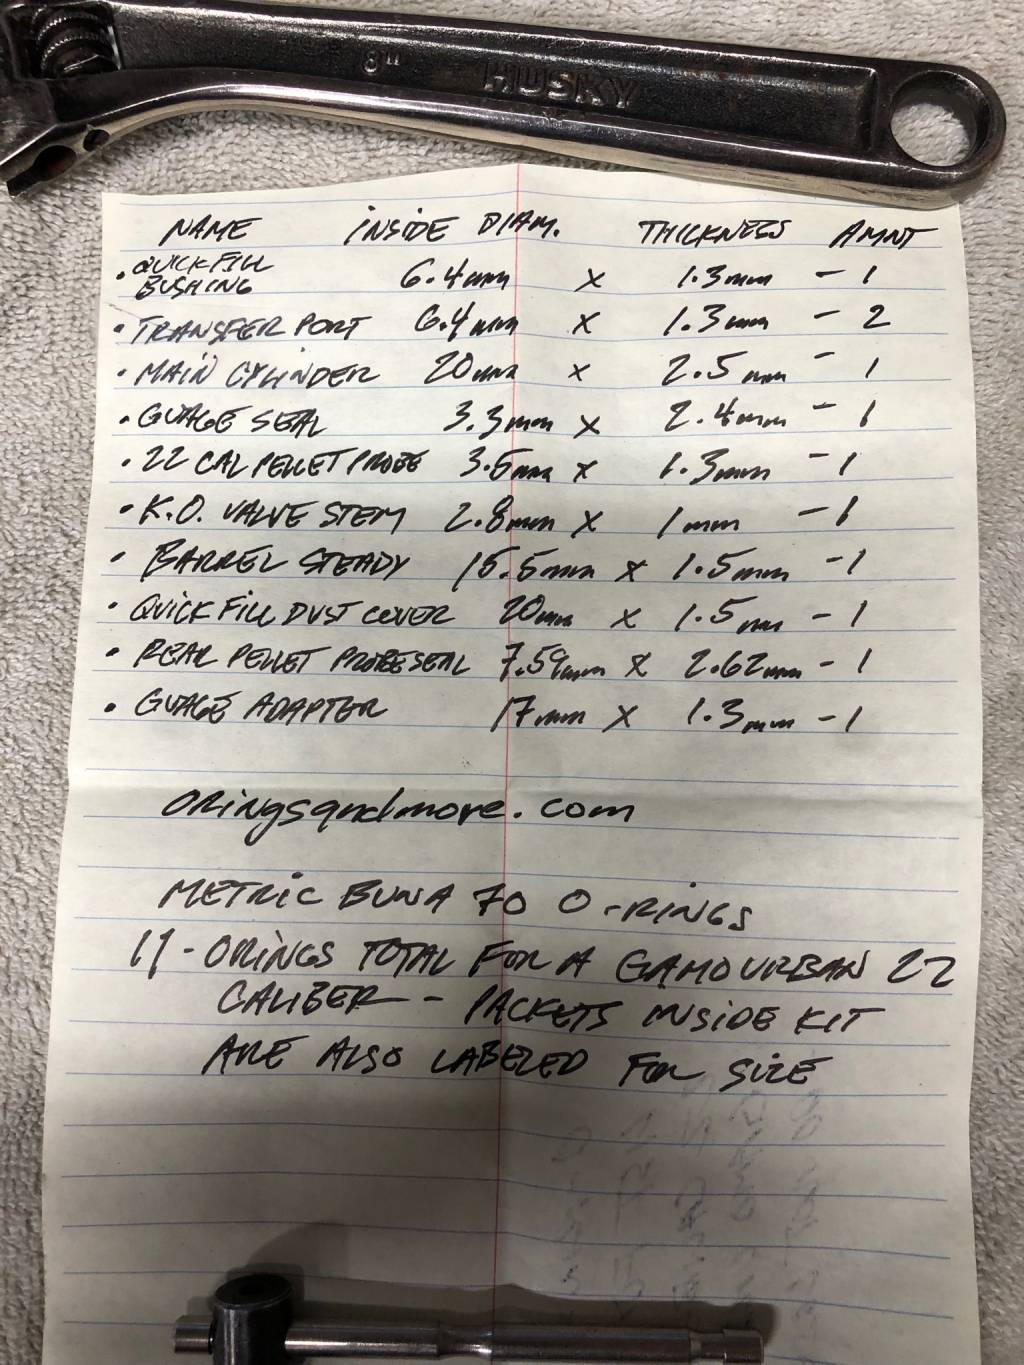 8" HUSKY
NAME INSIDE DIAM. THICKNESS AMNT
• QUICK FILL
BUSHING 6.4mm x 1.3mm - 1
• TRANSFER PORT 6.4mm x 1.3mm - 2
• MAIN CYLINDER 20mm x 2.5mm - 1
• GUAGE SEAL 3.3mm x 2.4mm - 1
• 22 CAL PELLET PROBE x 1.3mm - 1
• K.O. VALVE STEM 2.8mm x 1mm - 1
• BARREL STEADY 15.5mm x 1.5mm - 1
• QUICK FILL DUST COVER 20mm x 1.5mm - 1
• REAR PELLET PROBE SEAL 7.59mm x 2.62mm - 1
• GUAGE ADAPTER 17mm x 1.3mm - 1
oringsandmore.com
METRIC BUNA 70 O-RINGS
11 - ORINGS TOTAL FOR A GAMO URBAN 22
CALIBER - PACKETS INSIDE KIT
ARE ALSO LABELED FOR SIZE